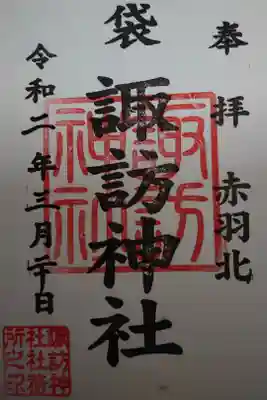 奉拝 赤羽北
袋
諏訪神社
令和二年三月二十日
諏訪
神社
諏訪神
社社務
所之印